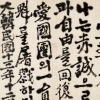 나는赤誠으로
과自由를回復
愛國團의一員
魁를屠戮하기
大韓民國十三年十二